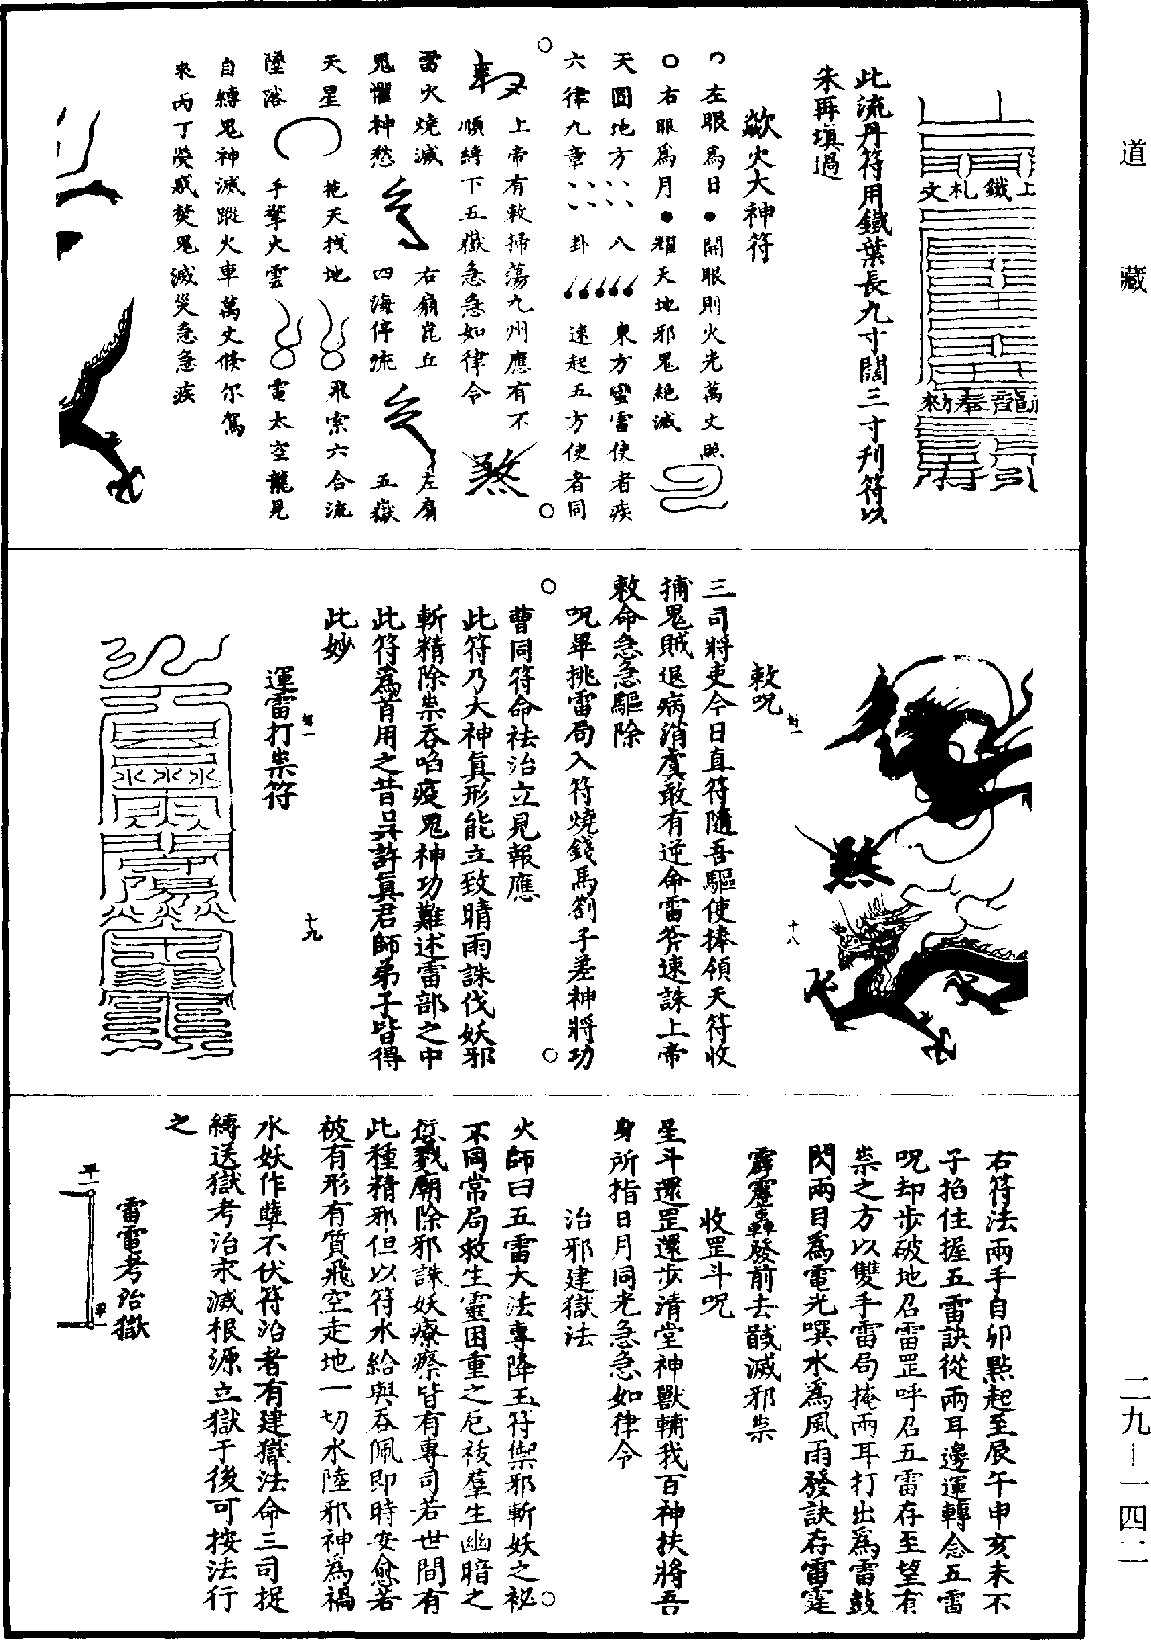 道藏
二九—一四二
上鐵札文
龍齊奉勑來
此流丹符用鐵葉長九寸闊三寸刋符以
朱再填過
歘火大神符
左眼爲日 開眼則火光萬丈照
右眼爲月 耀天地邪鬼絕滅
天圓地方 八 東方蠻雷使者疾
六律九章 卦 速起五方使者同
上帝有敕掃蕩九州應有不
順縛下五嶽急急如律令 煞
雷火燒滅 右扇崑丘 左扇
鬼懼神愁 四海停流 五嶽
天星 拖天找地 飛索六合流
墜落 手擎火雲 電太空龍見
自縛鬼神滅蹤火車萬丈倏尔駕
來丙丁熒惑焚鬼滅災急急疾
煞
十八
敕咒
三司將吏今日直符隨吾驅使捧領天符收
捕鬼賊退病消虞敢有逆命雷斧速誅上帝
敕命急急驅除
咒畢挑雷局入符燒錢馬劄子差神將功
曹同符命祛治立見報應
此符乃大神眞形能立致晴雨誅伐妖邪
斬精除祟吞啗疫鬼神功難述雷部之中
此符爲首用之昔吳許眞君師弟子皆得
此妙
十九
運雷打祟符
水水水
右符法兩手自卯點起至辰午申亥未不
子掐住握五雷訣從兩耳邊運轉念五雷
呪却步破地召雷罡呼召五雷存至望有
祟之方以雙手雷局掩兩耳打出爲雷鼓
閃兩目爲電光噀水爲風雨發訣存雷霆
霹靂轟發前去馘滅邪祟
收罡斗呪
星斗還罡還步清堂神獸輔我百神扶將吾
身所指日月同光急急如律令
治邪建獄法
火師曰五雷大法專降玉符禦邪斬妖之祕
不同常局救生靈困重之厄祓羣生幽暗之
愆戮廟除邪誅妖療瘵皆有專司若世間有
此種精邪但以符水給與吞佩即時安愈若
被有形有質飛空走地一切水陸邪神爲禍
水妖作孽不伏符治者有建獄法命三司捉
縛送獄考治永滅根源立獄于後可按法行
之
雷霆考治獄